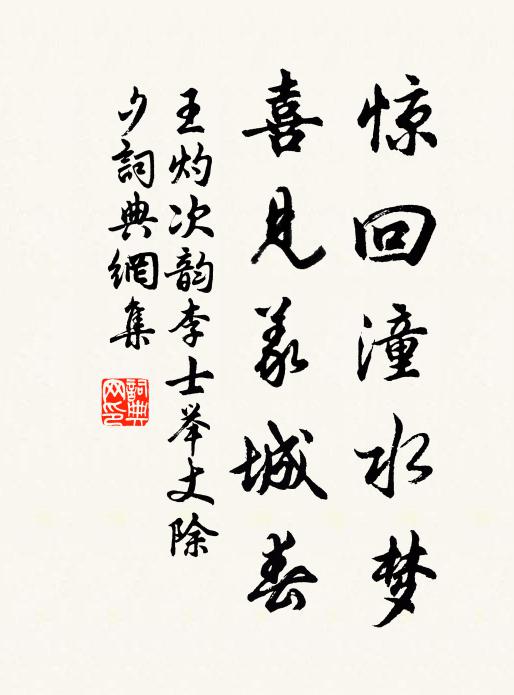 惊回潼水梦
喜见羕城春
王灼次韵李士举丈除
夕詞典網集
詞典网印